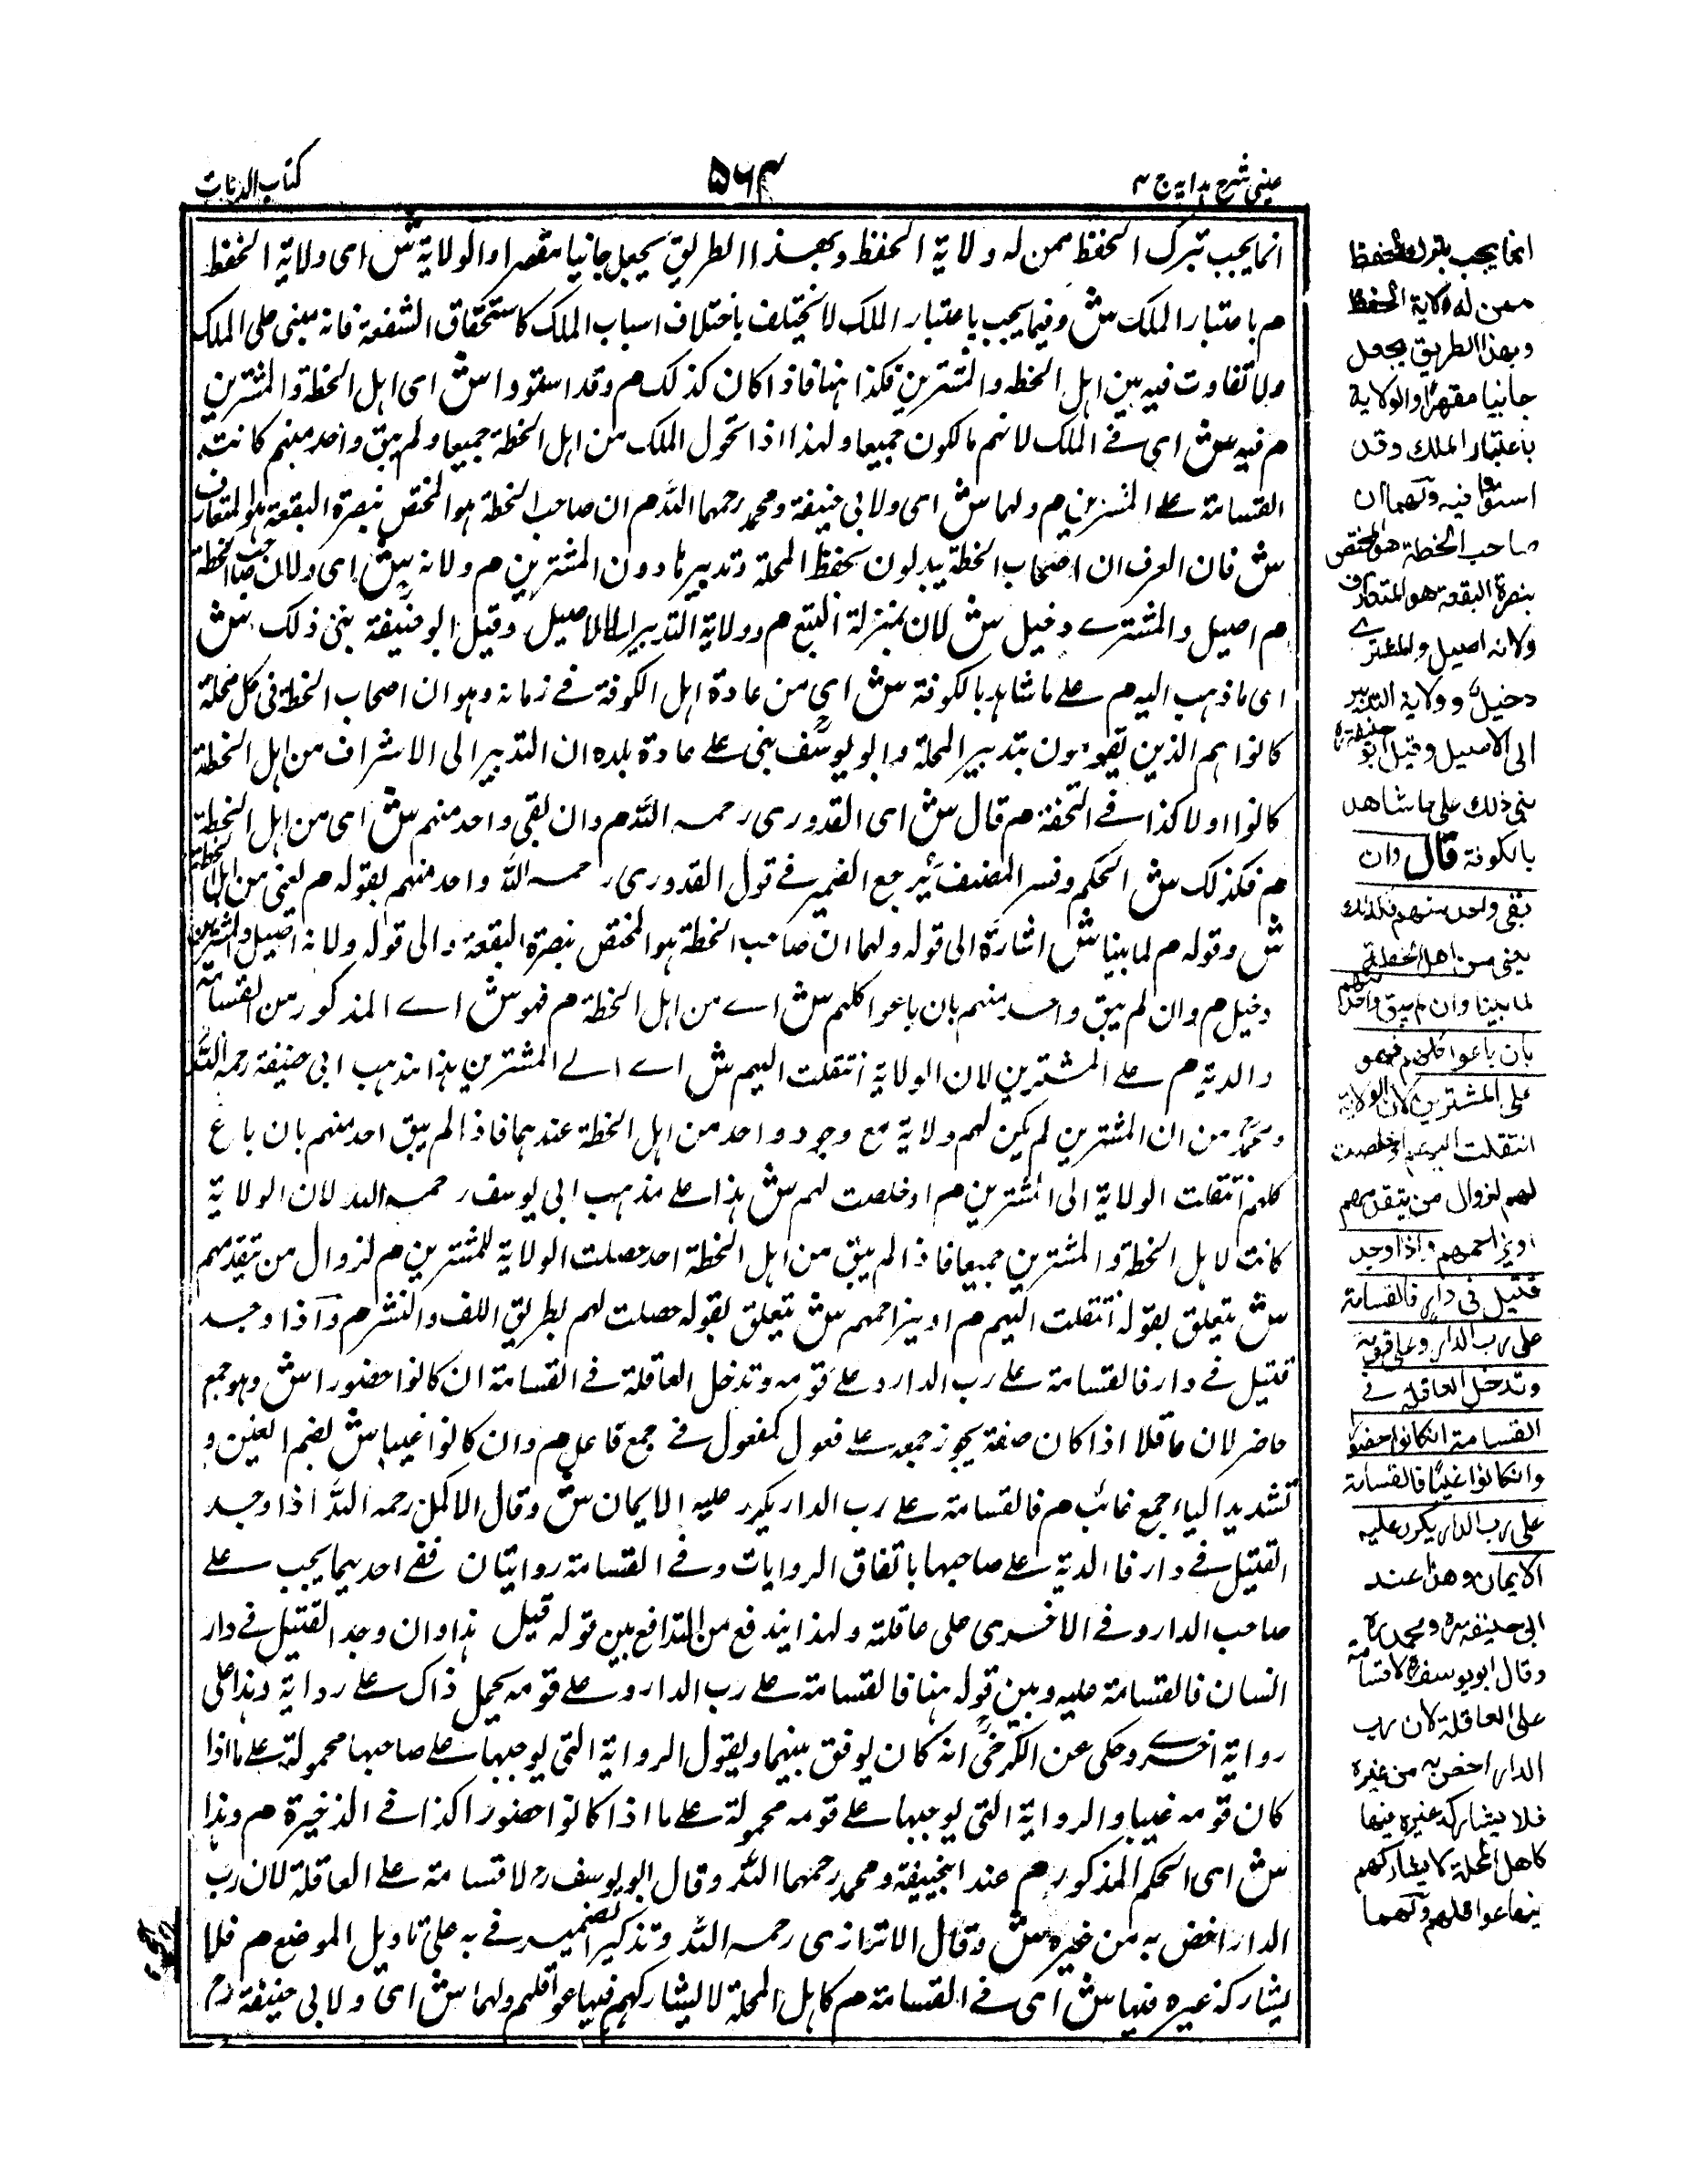 عینی شرح ہدایہ ج ۴
۵۶۴
کتاب الدیات
انما یجب بترک الحفظ ممن لہ ولایۃ الحفظ وبھذا الطریق یجعل جانیا مقصرا والولایۃ ش ای ولایۃ الحفظ
م باعتبار الملک ش وفیما یجب باعتبار الملک لا یختلف باختلاف اسباب الملک کاستحقاق الشفعۃ فانہ مبنی علی الملک
ولا تفاوت فیہ بین اہل الخطہ والمشترین فکذا ہنا فاذا کان کذلک م وقد استووا ش ای اہل الخطۃ والمشترین
م فیہ ش ای فی الملک لانہم مالکون جمیعا ولہذا اذا تحول الملک من اہل الخطۃ جمیعا ولم یبق واحد منہم کانت
القسامۃ علے المشترین م ولہما ش ای ولابی حنیفۃ ومحمد رحمہما اللہ م ان صاحب الخطۃ ہو المختص بنصرۃ البقعۃ ہو المتعارف
ش فان العرف ان اصحاب الخطۃ یبدلون بحفظ المحلۃ وتدبیرہا دون المشترین م ولانہ ش ای ولان صاحب الخطۃ
م اصیل والمشترے دخیل ش لان بمنزلۃ التبع م وولایۃ التدبیر الی الاصیل وقیل ابو حنیفۃ بنی ذلک ش
ای ما ذہب الیہ م علے ما شاہد بالکوفۃ ش ای من عادۃ اہل الکوفۃ فے زمانہ وہو ان اصحاب الخطۃ فی کل محلۃ
کانوا ہم الذین یقومون بتدبیر المحلۃ وابو یوسف بنی علے عادۃ بلدہ ان التدبیر الی الاشراف من اہل الخطۃ
کانوا اولا کذا فے التحفۃ م قال ش ای القدوری رحمہ اللہ م وان بقی واحد منہم ش ای من اہل الخطۃ
م فکذلک ش الحکم وفسر المصنف مرجع الضمیر فے قول القدوری رحمہ اللہ واحد منہم بقولہ م یعنی من اہل الخطۃ
ش وقولہ م لما بینا ش اشارۃ الی قولہ ولہما ان صاحب الخطۃ ہو المختص بنصرۃ البقعۃ والی قولہ ولانہ اصیل والمشترین
دخیل م وان لم یبق واحد منہم بان باعوا کلہم ش اے من اہل الخطۃ م فہو ش اے المذکور من القسامۃ
والدیۃ م علے المشترین لان الولایۃ انتقلت الیہم ش اے الے المشترین ہذا مذہب ابی حنیفۃ رحمہ اللہ
ومحمد من ان المشترین لم یکن لہم ولایۃ مع وجود واحد من اہل الخطۃ عندہما فاذا لم یبق احد منہم بان باع
کلہم انتقلت الولایۃ الی المشترین م او خلصت لہم ش ہذا علے مذہب ابی یوسف رحمہ اللہ لان الولایۃ
کانت لاہل الخطۃ والمشترین جمیعا فاذا لم یبق من اہل الخطۃ احد حصلت الولایۃ للمشترین م لزوال من یتقدمہم
ش یتعلق بقولہ انتقلت الیہم م او یزاحمہم ش یتعلق بقولہ حصلت لہم بطریق اللف والنشر م واذا وجد
قتیل فے دار فالقسامۃ علے رب الدار وعلے قومہ وتدخل العاقلۃ فے القسامۃ ان کانوا حضورا ش وہو جمع
حاضر لان فاعلا اذا کان صفۃ یجوز جمعہ علے فعول کمفعول فے جمع فاعل م وان کانوا غیبا ش بضم الغین و
تشدید الیاء جمع غائب م فالقسامۃ علے رب الدار یکرر علیہ الایمان ش وقال الاکمل رحمہ اللہ اذا وجد
القتیل فے دار فالدیۃ علے صاحبہا باتفاق الروایات وفے القسامۃ روایتان ففے احدیہما یجب علے
صاحب الدار وفے الاخری علی عاقلتہ ولہذا یندفع من التدافع بین قولہ قبیل ہذا وان وجد القتیل فے دار
انسان فالقسامۃ علیہ وبین قولہ ہنا فالقسامۃ علے رب الدار وعلے قومہ یحمل ذاک علے روایۃ وہذا علی
روایۃ اخرے وحکی عن الکرخی انہ کان یوفق بینہما ویقول الروایۃ التی یوجبہا علے صاحبہا محمولۃ علے ما اذا
کان قومہ غیبا والروایۃ التی یوجبہا علے قومہ محمولۃ علے ما اذا کانوا حضورا کذا فے الذخیرۃ م وہذا
ش ای الحکم المذکور م عند ابیحنیفۃ ومحمد رحمہما اللہ وقال ابو یوسف رح لا قسامۃ علے العاقلۃ لان رب
الدار اخص بہ من غیرہ ش وقال الاترازی رحمہ اللہ وتذکیر الضمیر فے بہ علی تاویل الموضع م فلا
یشارکہ غیرہ فیہا ش ای فے القسامۃ م کاہل المحلۃ لا یشارکہم فیہا عواقلہم ولہما ش ای ولابی حنیفۃ رح
انما یجب بترک الحفظ
ممن لہ ولایۃ الحفظ
وبھذا الطریق یجعل
جانیا مقصرا والولایۃ
باعتبار الملک وقد
استووا فیہ ولھما ان
صاحب الخطۃ ھو المختص
بنصرۃ البقعۃ ھو المتعارف
ولانہ اصیل والمشترے
دخیل وولایۃ التدبیر
الی الاصیل وقیل ابو حنیفۃ رح
بنی ذلک علی ما شاھد
بالکوفۃ قال وان
بقی واحد منھم فکذلک
یعنی من اھل الخطۃ
لما بینا وان لم یبق واحد منھم
بان باعوا کلھم فھو
علی المشترین لان الولایۃ
انتقلت الیھم او خلصت
لھم لزوال من یتقدمھم
او یزاحمھم واذا وجد
قتیل فی دار فالقسامۃ
علی رب الدار وعلی قومہ
وتدخل العاقلۃ فے
القسامۃ ان کانوا حضورا
وان کانوا غیبا فالقسامۃ
علی رب الدار یکرر علیہ
الایمان وھذا عند
ابی حنیفۃ رح ومحمد رح
وقال ابو یوسف رح لا قسامۃ
علی العاقلۃ لان رب
الدار اخص بہ من غیرہ
فلا یشارکہ غیرہ فیھا
کاھل المحلۃ لا یشارکھم
فیھا عواقلھم ولھما